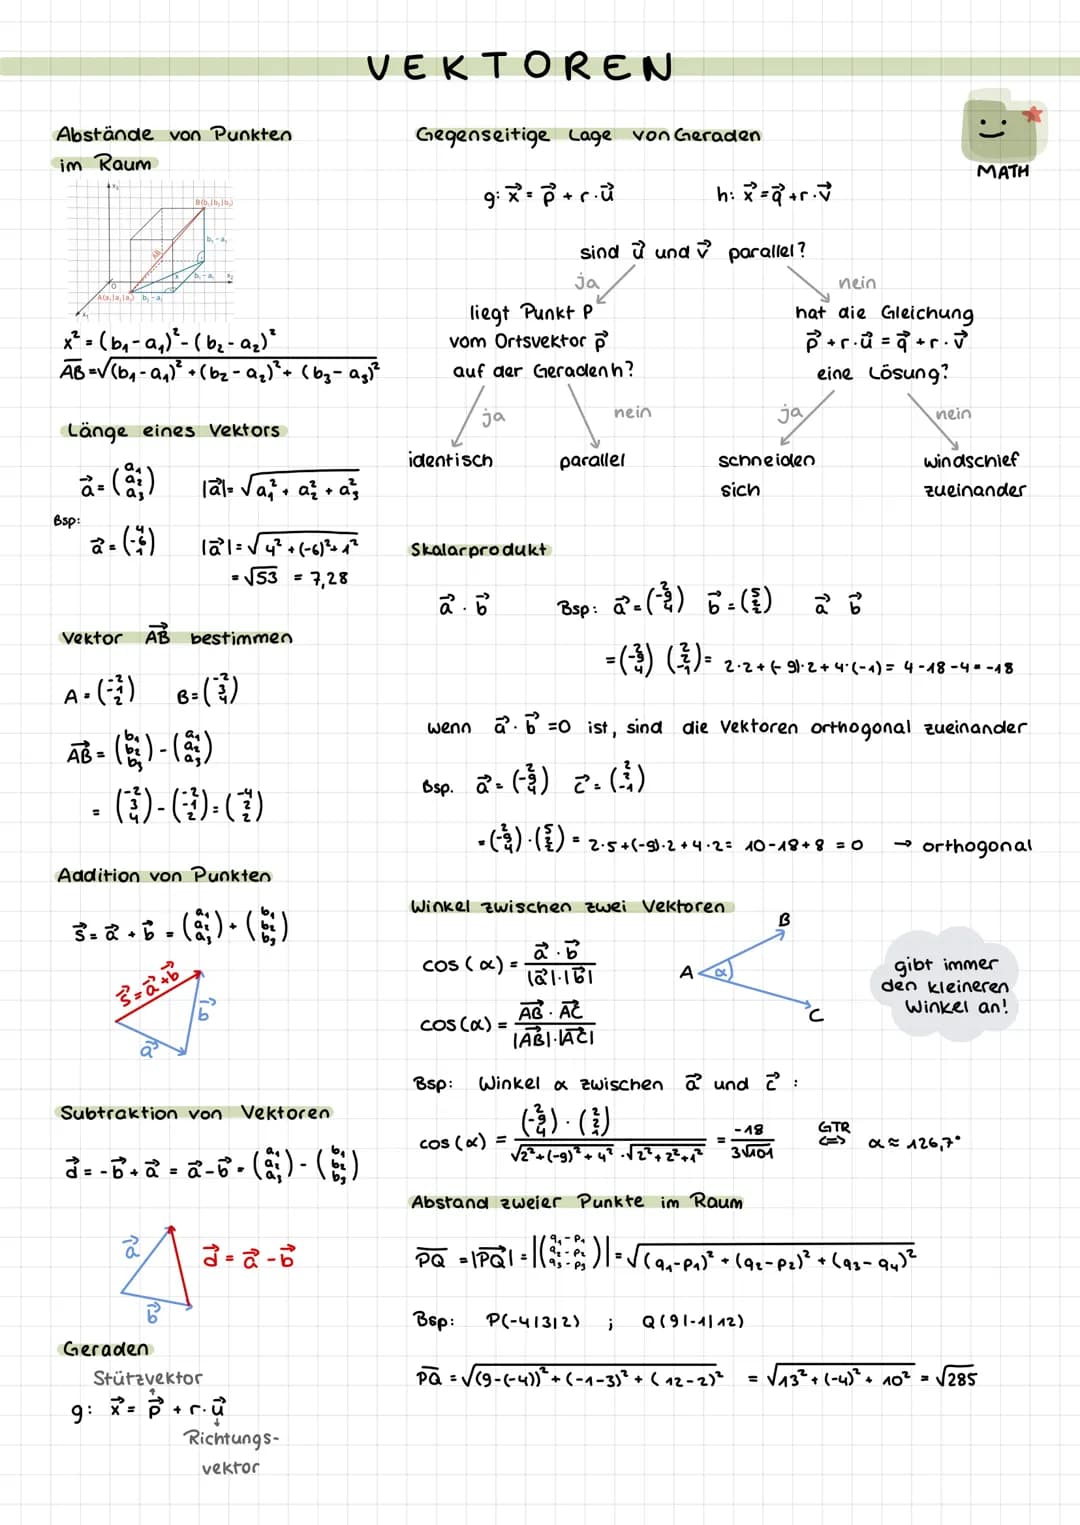 VEKTOREN
MATH
Abstände von Punkten
im Raum
B(b₁|b₂|b₃)
A(a₁|a₂|a₃)
x² = (b₁-a₁)² - (b₂-a₂)²
AB = √(b₁-a₁)² + (b₂-a₂)² + (b₃-a₃)²
Länge eines Vektors
a⃗ = (a₁ a₂ a₃) |a⃗| = √a₁² + a₂² + a₃²
Bsp:
a⃗ = (4 -6 1) |a⃗| = √4² + (-6)² + 1²
= √53 = 7,28
Vektor AB⃗ bestimmen
A = (-2 -1 2) B = (-2 3 4)
AB⃗ = (b₁ b₂ b₃) - (a₁ a₂ a₃)
Addition von Punkten
s⃗ = a⃗ + b⃗ = (a₁ a₂ a₃) + (b₁ b₂ b₃)
s⃗ = a⃗ + b⃗
b⃗
a⃗
Subtraktion von Vektoren
d⃗ = -b⃗ + a⃗ = a⃗ - b⃗ = (a₁ a₂ a₃) - (b₁ b₂ b₃)
a⃗
d⃗ = a⃗ - b⃗
b⃗
Geraden
Stützvektor
g: x⃗ = p⃗ + r·u⃗
Richtungs-
vektor
Gegenseitige Lage von Geraden
g: x⃗ = p⃗ + r·u⃗ h: x⃗ = q⃗ + r·v⃗
sind u⃗ und v⃗ parallel?
ja nein
liegt Punkt P
vom Ortsvektor p⃗
auf der Geraden h?
hat die Gleichung
p⃗ + r·u⃗ = q⃗ + r·v⃗
eine Lösung?
ja nein ja nein
identisch parallel
schneiden
sich
windschief
zueinander
Skalarprodukt
a⃗ · b⃗ Bsp: a⃗ = (2 -9 4) b⃗ = (5 2 2) a⃗ b⃗
= (2 -9 4) (2 2 -1) = 2·2 + (-9)·2 + 4·(-1) = 4-18-4 = -18
wenn a⃗ · b⃗ = 0 ist, sind die Vektoren orthogonal zueinander
Bsp. a⃗ = (2 -9 4) c⃗ = (2 2 -1)
= (2 -9 4) · (5 2 2) = 2·5 + (-9)·2 + 4·2 = 10-18+8 = 0 → orthogonal
Winkel zwischen zwei Vektoren
cos(α) = a⃗ · b⃗ / |a⃗|·|b⃗|
cos(α) = AB⃗ · AC⃗ / |AB⃗|·|AC⃗|
B
A α
C
gibt immer
den kleineren
Winkel an!
Bsp: Winkel α zwischen a⃗ und c⃗ :
cos(α) = (2 -9 4) · (2 2 1) / √2²+(-9)²+4² · √2²+2²+1² = -18 / 3√101 GTR ⇔ α ≈ 126,7°
Abstand zweier Punkte im Raum
PQ = |PQ⃗| = |(q₁-p₁ q₂-p₂ q₃-p₃)| = √(q₁-p₁)² + (q₂-p₂)² + (q₃-q₄)²
Bsp: P(-4|3|2) ; Q(9|-1|12)
PQ = √(9-(-4))² + (-1-3)² + (12-2)² = √13² + (-4)² + 10² = √285